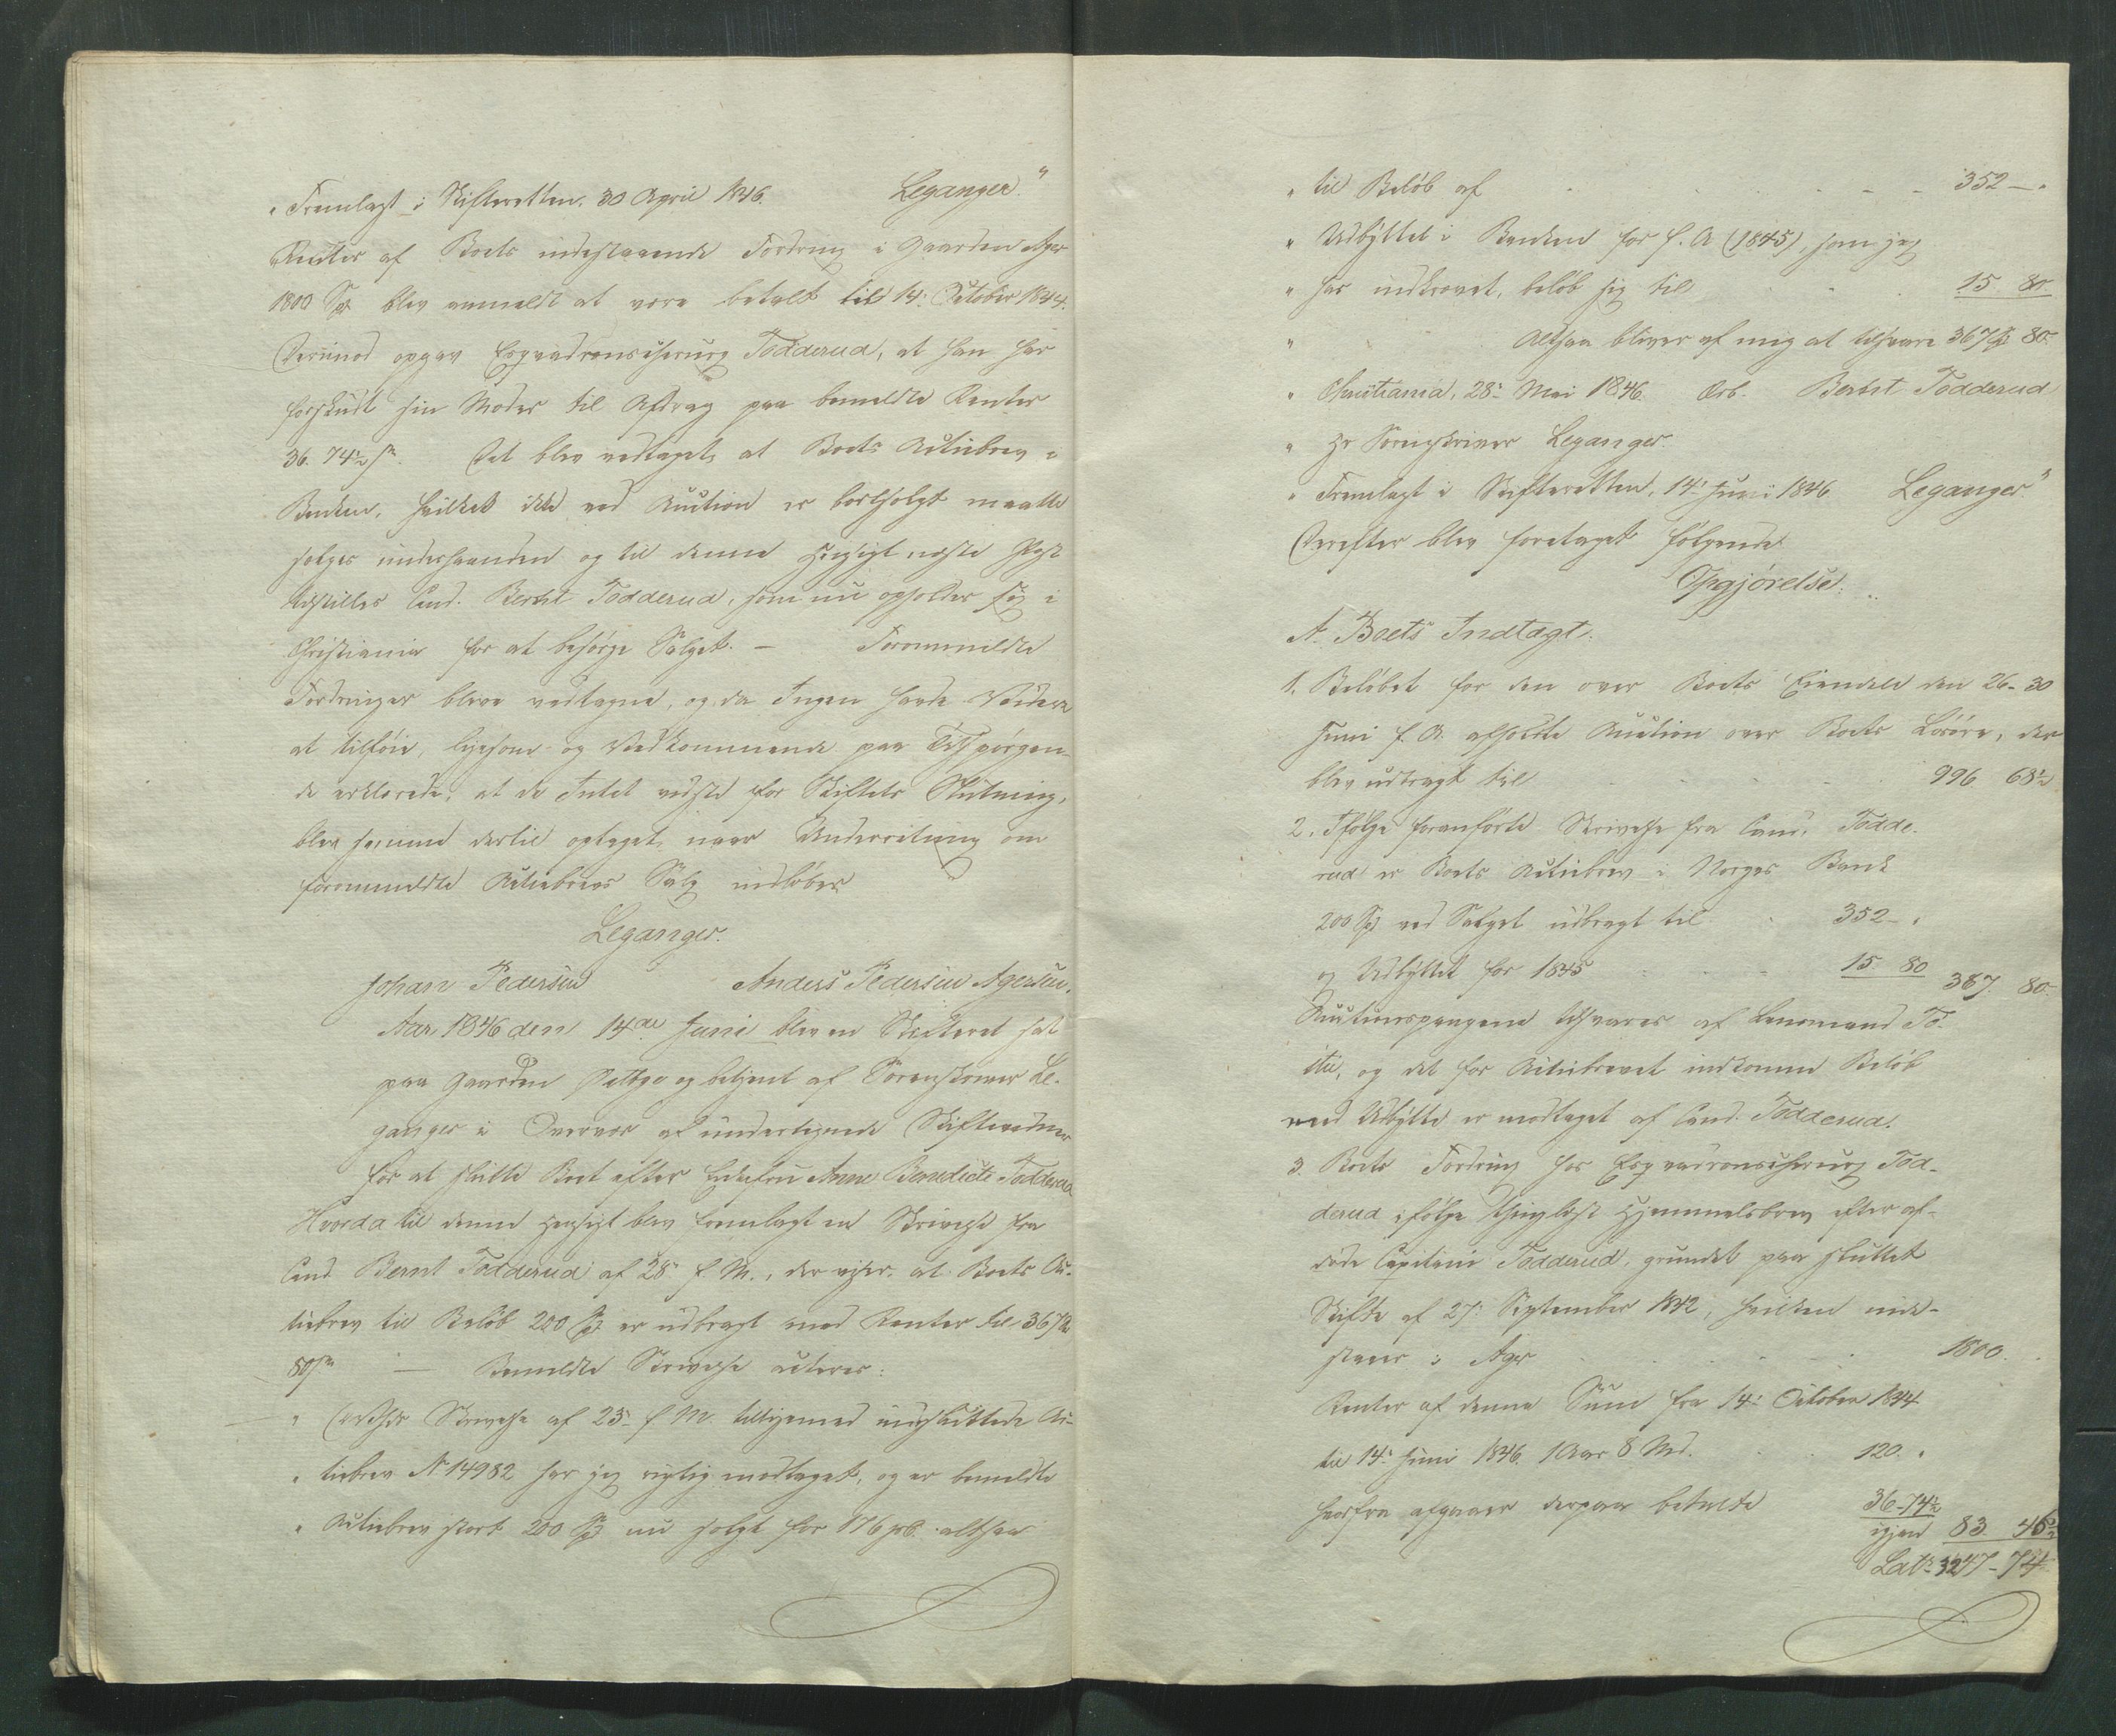 „Fremlagt i Skifteretten, 30 April 1846. Leganger"
Renter af Boets indestaaende Fordring i Gaarden Ager
1800 Spd blev anmeldt at være betalt til 14de October 1844.
Derimod opgav Esqvadronschirurg Todderud, at han har
forskudt sin Moder til Afdrag paa bemeldte Renter
36. 74½ s. Det blev vedtaget, at Boets Actiebrev i
Banken, hvilket ikke ved Auction er bortsolgt maatte
sælges underhaanden og til denne Hensigt næste Post
tilstilles Cand. Bernt Todderud, som nu opholder sig i
Christiania for at besørge Salget. — Foranmeldte
Fordringer bleve vedtagne, og da Ingen havde Videre
at tilføie, ligesom og Vedkommende paa Tilspørgen-
de erklærede, at de Intet vidste for Skiftets Slutning,
blev samme dertil optaget, naar Underretning om
foranmeldte Actiebrevs Salg indløber
Leganger.
Johan Pedersen Anders Pedersen Agersen.
Aar 1846 den 14de Juni blev en Skifteret sat
paa Gaarden og betjent af Sorenskriver Le-
ganger i Overvær af undertegnede Skiftevidner
for at slutte Boet efter Enkefru Anne Benedicte Todderud
Hvorda til denne Hensigt blev fremlagt en Skrivelse fra
Cand. Bernt Todderud af 28de f. M., der viser, at Boets Ac-
tiebrev til Beløb 200 Spd er udbragt med Renter til 367 Spd
80 s — Bemeldte Skrivelse acteres:
„ Skrivelse af 23de f. M. tilligemed indsluttede Ac-
„ tiebrev No 14982 har jeg rigtig modtaget, og er bemeldte
„ Actiebrev stort 200 Spd nu solgt for 176 pCt. altsaa
„ til Beløb af 352 — „
„ Udbyttet i Banken for f. A (1845), som jeg
„ har indkrævet, beløb sig til 15. 80.
„ Altsaa bliver af mig at tilsvare 367 Spd 80
„ Christiania, 28de Mai 1846. Ærb. Bernt Todderud
„ Hr Sorenskriver Leganger.
„ Fremlagt i Skifteretten, 14de Juni 1846 Leganger"
Derefter blev foretaget følgende
Opgjørelse:
A. Boets Indtægt.
1. Beløbet for den over Boets Eiendele den 26-30
Juni f. A. afholdte Auction over Boets Løsøre, der
blev udbragt til 996 68½
2. Ifølge foranførte Skrivelse fra Cand. Todde-
rud er Boets Actiebrev i Norges Bank
200 Spd ved Salget udbragt til 352 — „
og Udbyttet for 1845 15 80
367. 80.
Auctionspengene tilsvares af Lensmand To-
, og det for Actiebrevet indkomne Beløb
med Udbytte er modtaget af Cand. Todderud.
3. Boets Fordring hos Esqvadronschirurg Tod-
derud ifølge thinglyst Hjemmelsbrev efter af-
døde Capitain Todderud, grundet paa sluttet
Skifte af 27de September 1842, hvilken inde-
staaer i Ager 1800.
Renter af denne Sum fra 14de October 1844
til 14de Juni 1846. 1 Aar 8 Md. 120. „
Herfra afgaaer derpaa betalte 36-74½
igjen 83. 45½
Lats 3247-74